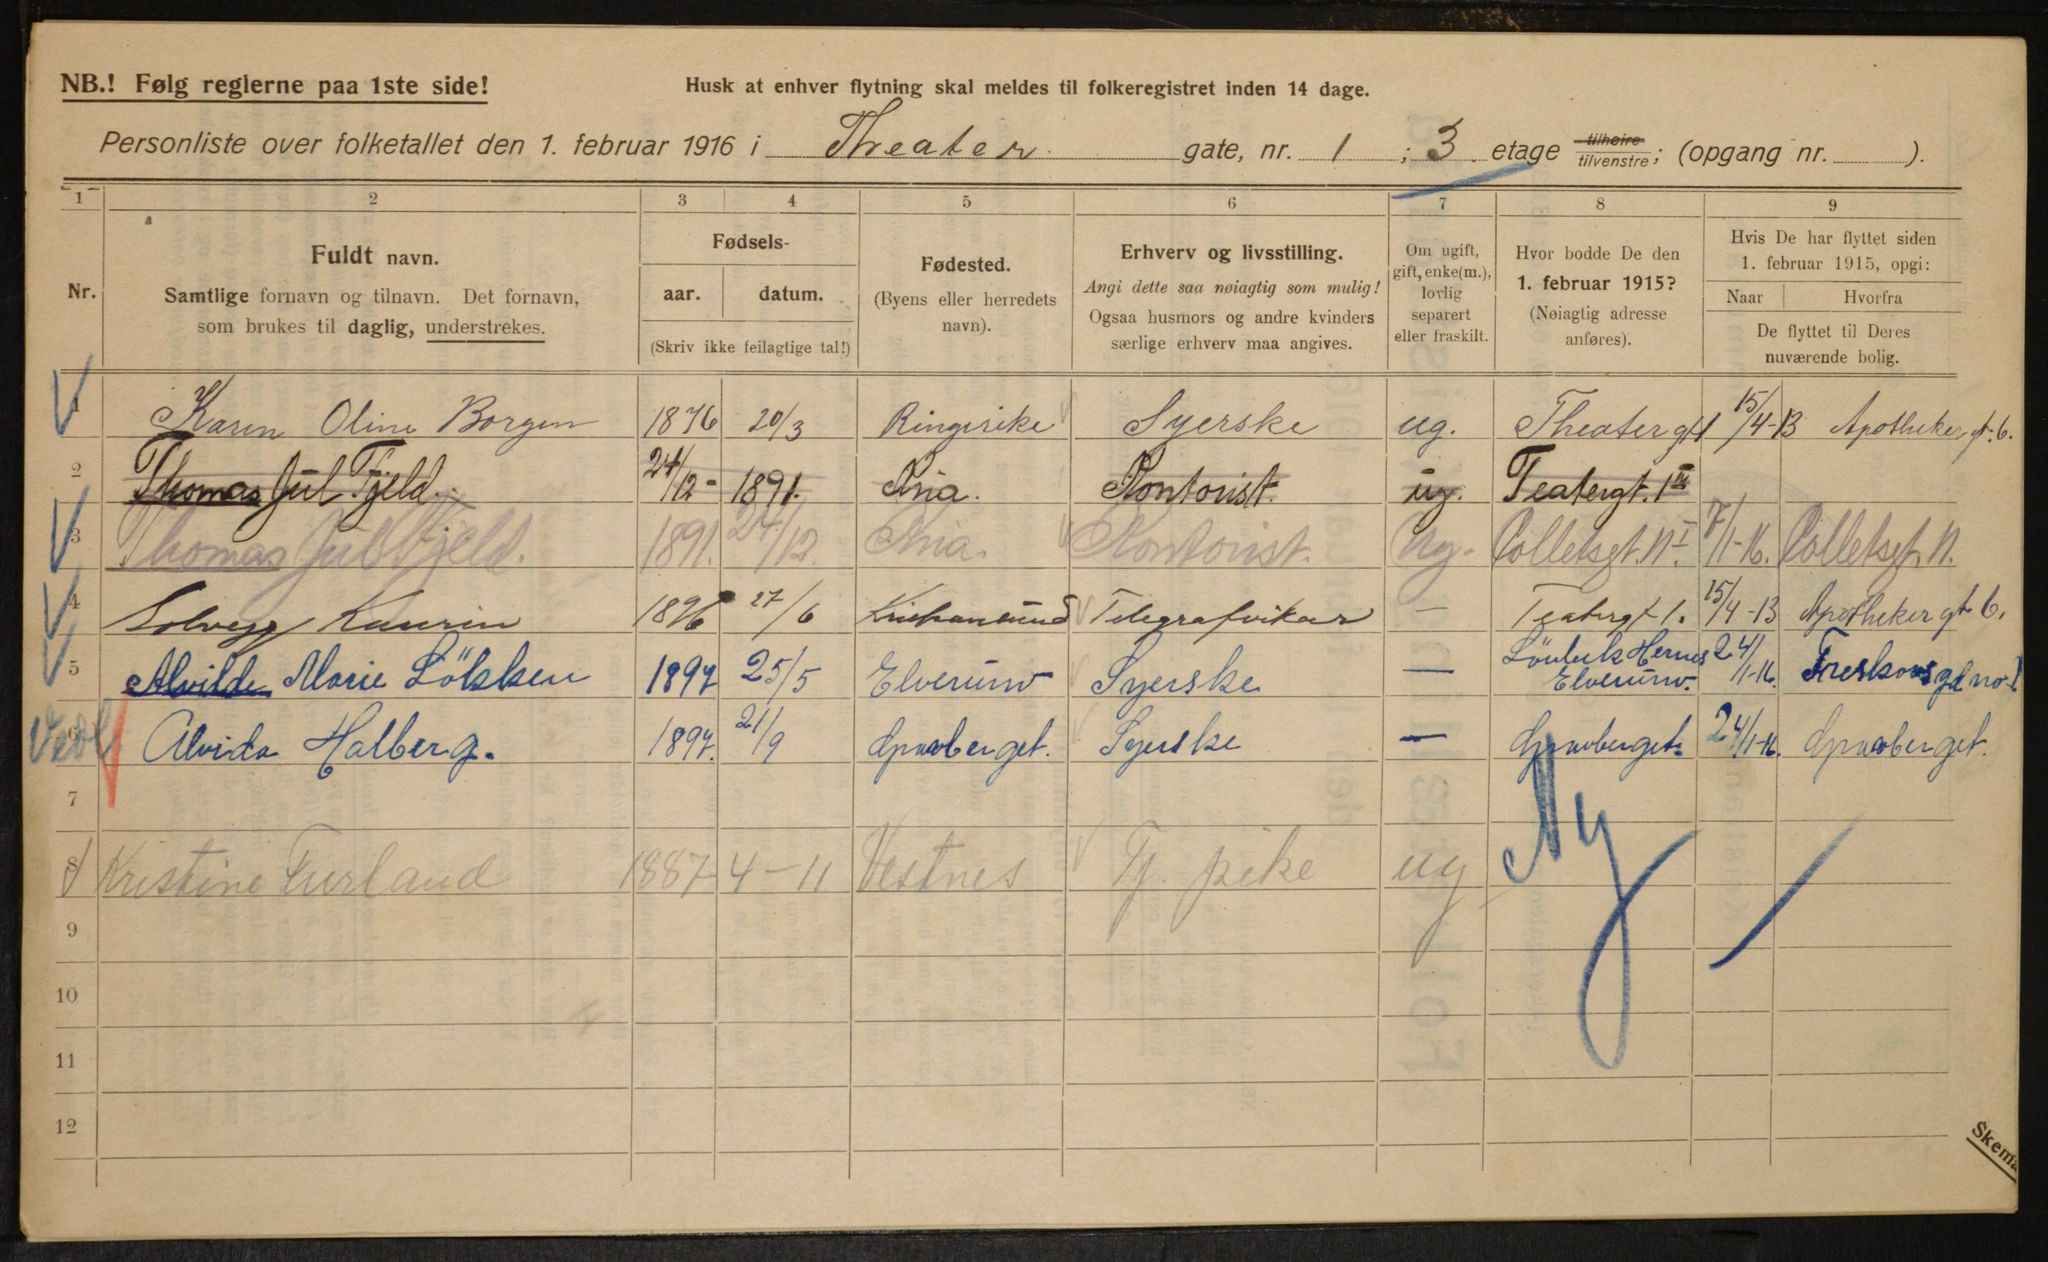 NB.! Følg reglerne paa 1ste side!
Husk at enhver flytning skal meldes til folkeregistret inden 14 dage.
Personliste over folketallet den 1. februar 1916 i Theater gate, nr. 1 ; 3 etage tilhøire tilvenstre; (opgang nr. ).
1 2 3 4 5 6 7 8 9
Nr.
Fuldt navn.
Samtlige fornavn og tilnavn. Det fornavn,
som brukes til daglig, understrekes.
Fødsels-
aar. datum.
(Skriv ikke feilagtige tal!)
Fødested.
(Byens eller herredets
navn).
Erhverv og livsstilling.
Angi dette saa nøiagtig som mulig!
Ogsaa husmors og andre kvinders
særlige erhverv maa angives.
Om ugift,
gift, enke(m.),
lovlig
separert
eller fraskilt.
Hvor bodde De den
1. februar 1915?
(Nøiagtig adresse
anføres).
Hvis De har flyttet siden
1. februar 1915, opgi:
Naar Hvorfra
De flyttet til Deres
nuværende bolig.
1 Karen Oline Borgen 1876 20/3 Ringerike Syerske ug. Theater gt 1 15/4-13 Apotheker gt. 6.
2 Thomas Jul Fjeld. 24/12- 1891. Kria. Kontorist. ug. Teatergt. 1 III
3 Thomas Jul Fjeld. 1891. 24/12. Kria. Kontorist. Ug. Colletsgt. 11 I 7/1-16. Colletsgt. 11.
4 Solveig Kaurin 1896 27/6 Kristiansund Telegrafvikar — Teatergt 1. 15/4-13 Apotheker gt 6.
5 Alvilde Marie Lökken 1897 25/5 Elverum Syerske — Hernes Elverum. 24/1-16.
6 Alvida Halberg. 1897. 21/9 Grueberget. Syerske — Grueberget. 24/1-16. Grueberget.
7
8 Kristine Furland 1887 4-11 Vestnes Tj. pike ug Ny
9
10
11
12
Skema